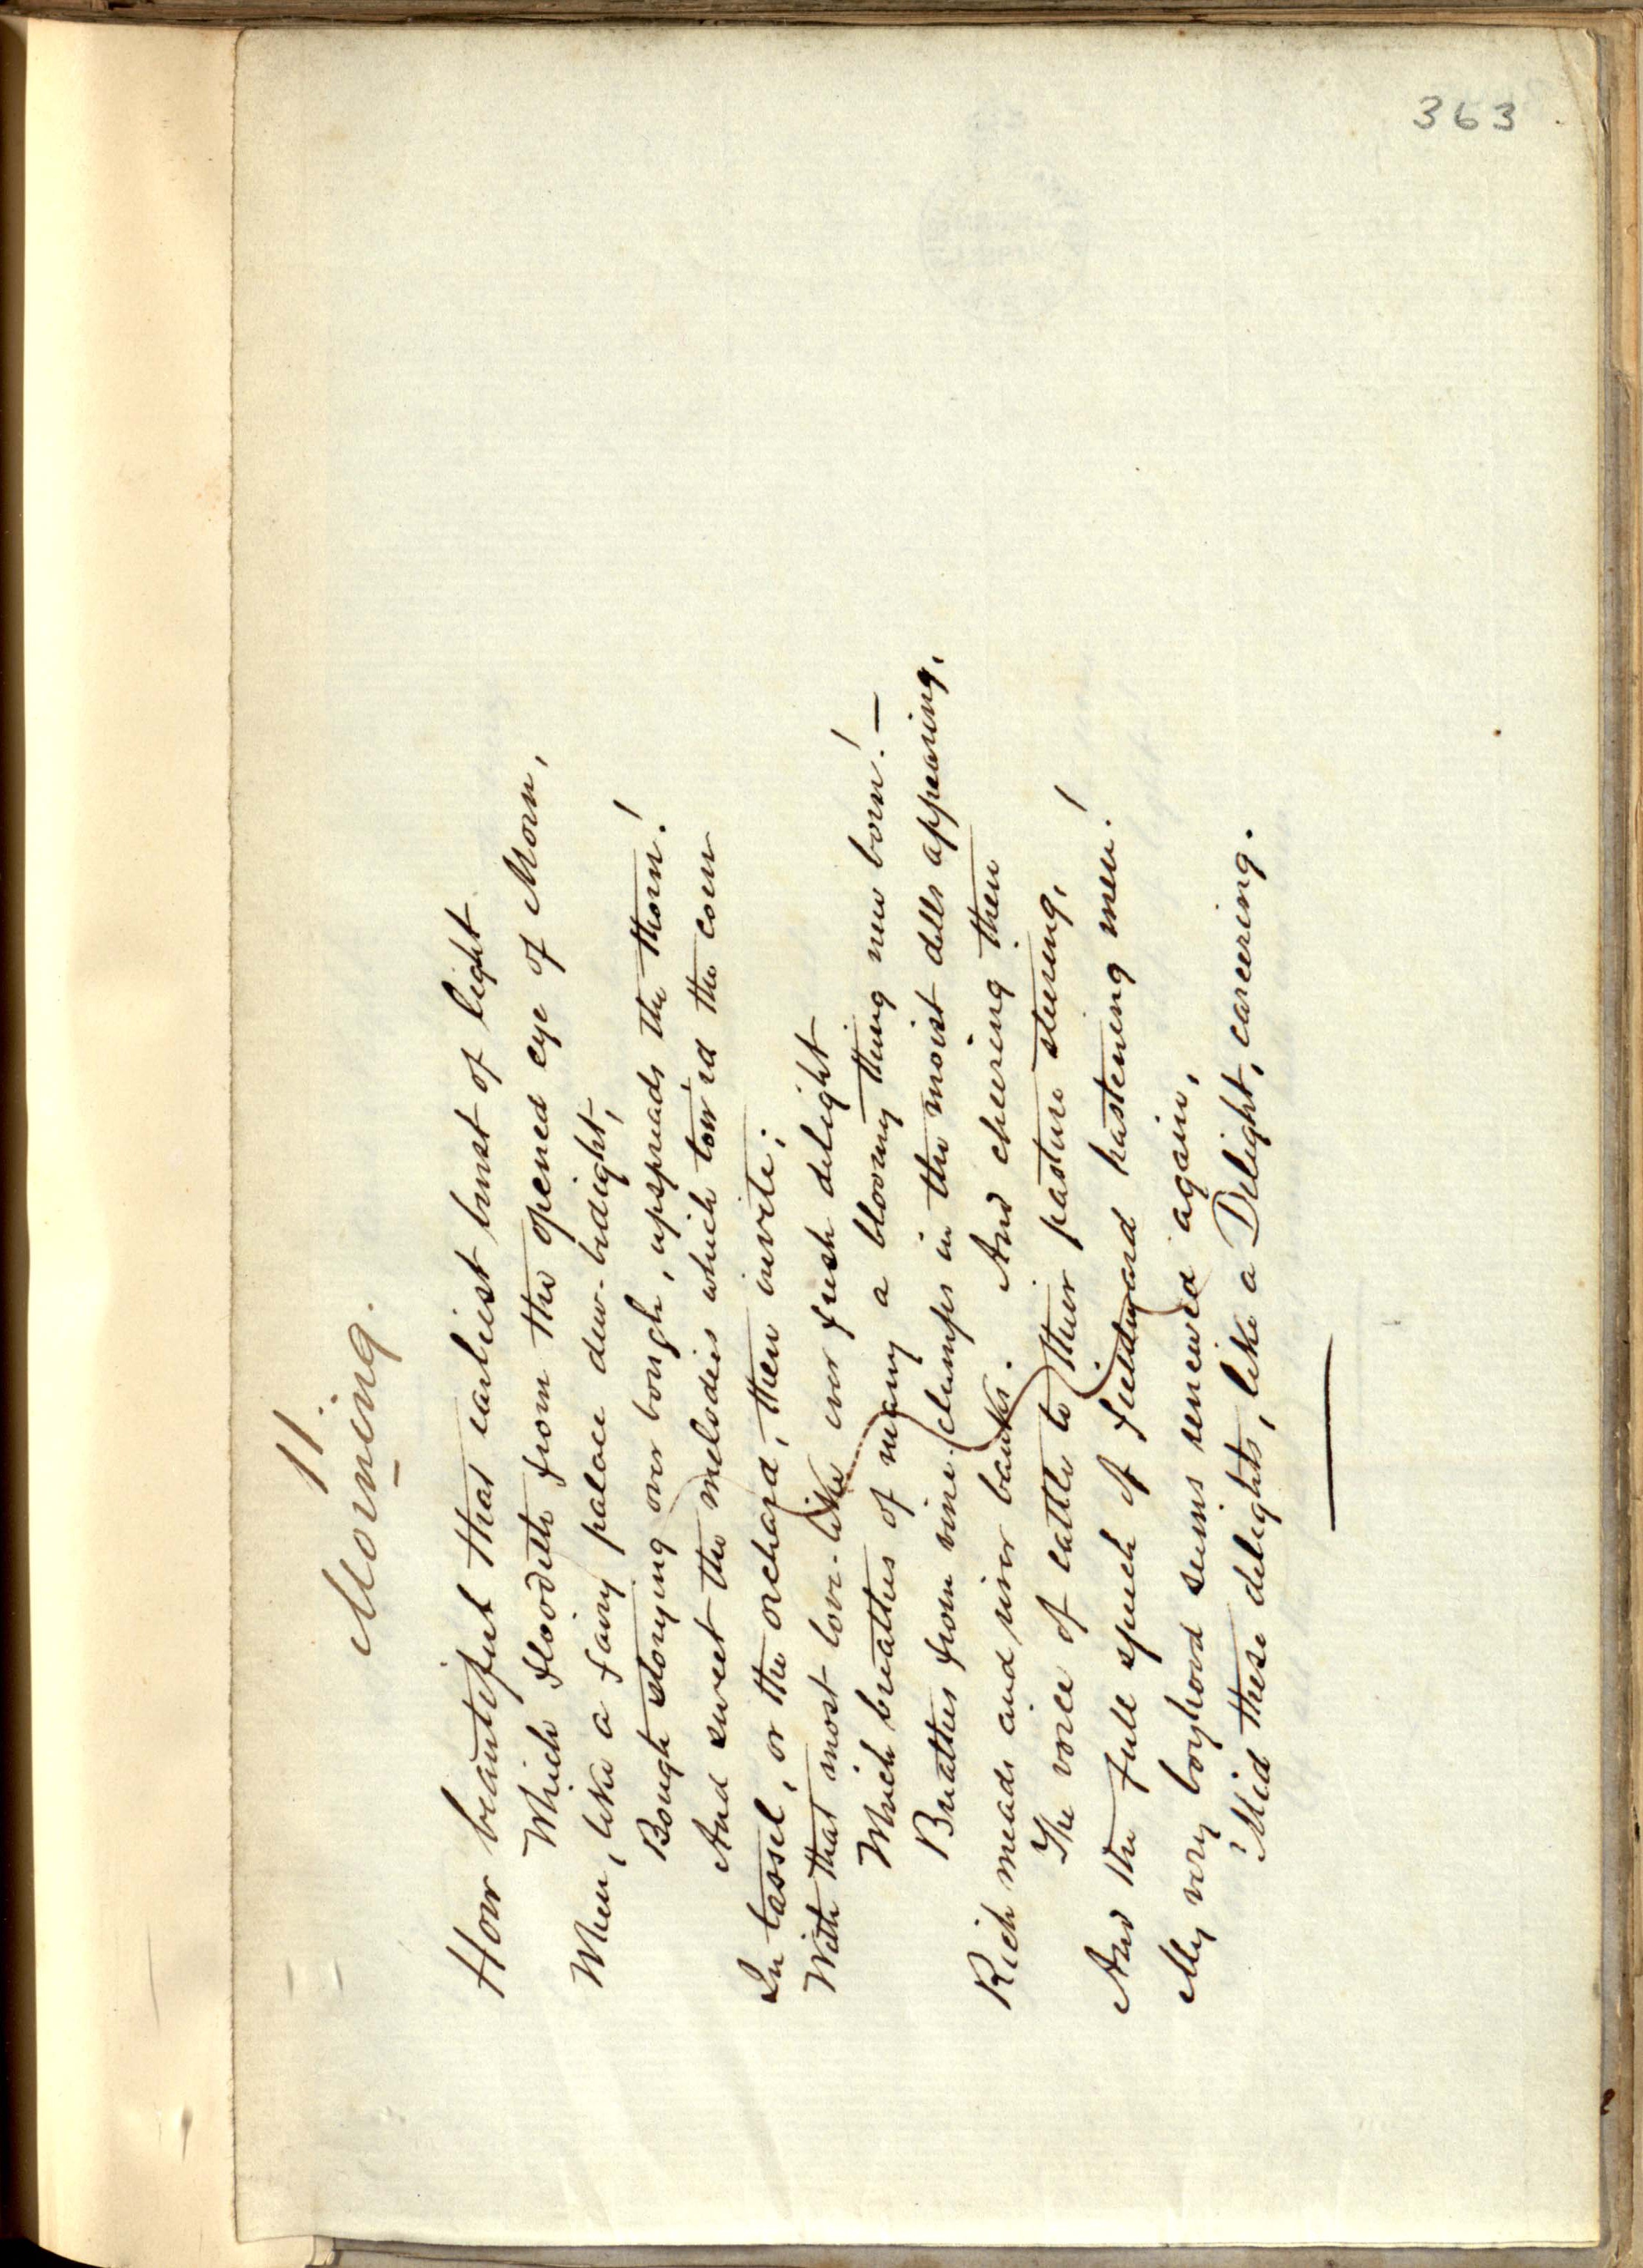 363
11.
Morning.
How beautiful that earliest burst of light
Which floodeth from the opened eye of Morn,
When, like a fairy palace dew-bedight,
Bough storying over bough, upspreads the thorn!
And sweet the melodies which tow'rd the corn
In tassel, or the orchard, then invite;
With that most love-like ever fresh delight
Which breathes of many a blooming thing new born!—
Breathes from vine-clumps in the moist dells appearing,
Rich meads and river banks. And cheering then
The voice of cattle to their pasture steering,
And the full speech of fieldward hastening men!
My very boyhood seems renewed again,
'Mid these delights, like a Delight, careering.